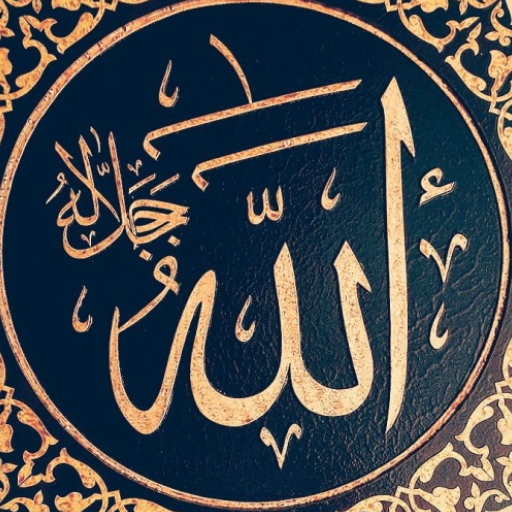 ألله
جل جلاله